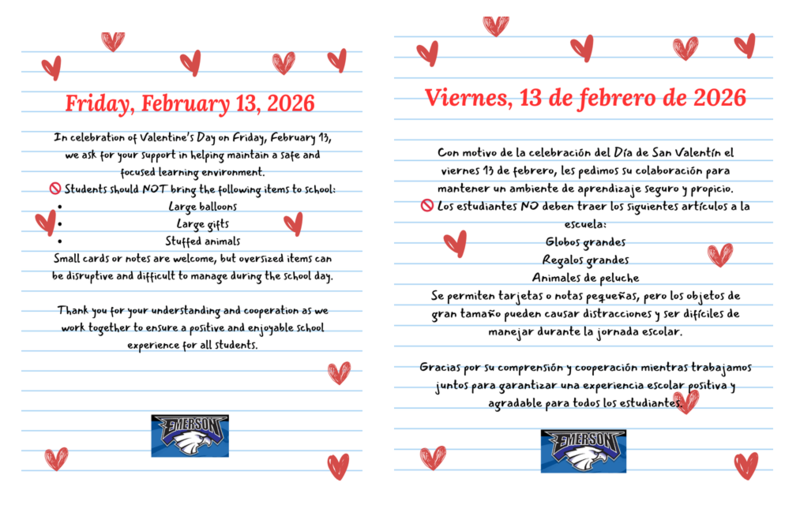 Friday, February 13, 2026
In celebration of Valentine's Day on Friday, February 13,
we ask for your support in helping maintain a safe and
focused learning environment.
🚫 Students should NOT bring the following items to school:
• Large balloons
• Large gifts
• Stuffed animals
Small cards or notes are welcome, but oversized items can
be disruptive and difficult to manage during the school day.
Thank you for your understanding and cooperation as we
work together to ensure a positive and enjoyable school
experience for all students.
EMERSON
Viernes, 13 de febrero de 2026
Con motivo de la celebración del Día de San Valentín el
viernes 13 de febrero, les pedimos su colaboración para
mantener un ambiente de aprendizaje seguro y propicio.
🚫 Los estudiantes NO deben traer los siguientes artículos a la
escuela:
Globos grandes
Regalos grandes
Animales de peluche
Se permiten tarjetas o notas pequeñas, pero los objetos de
gran tamaño pueden causar distracciones y ser difíciles de
manejar durante la jornada escolar.
Gracias por su comprensión y cooperación mientras trabajamos
juntos para garantizar una experiencia escolar positiva y
agradable para todos los estudiantes.
EMERSON